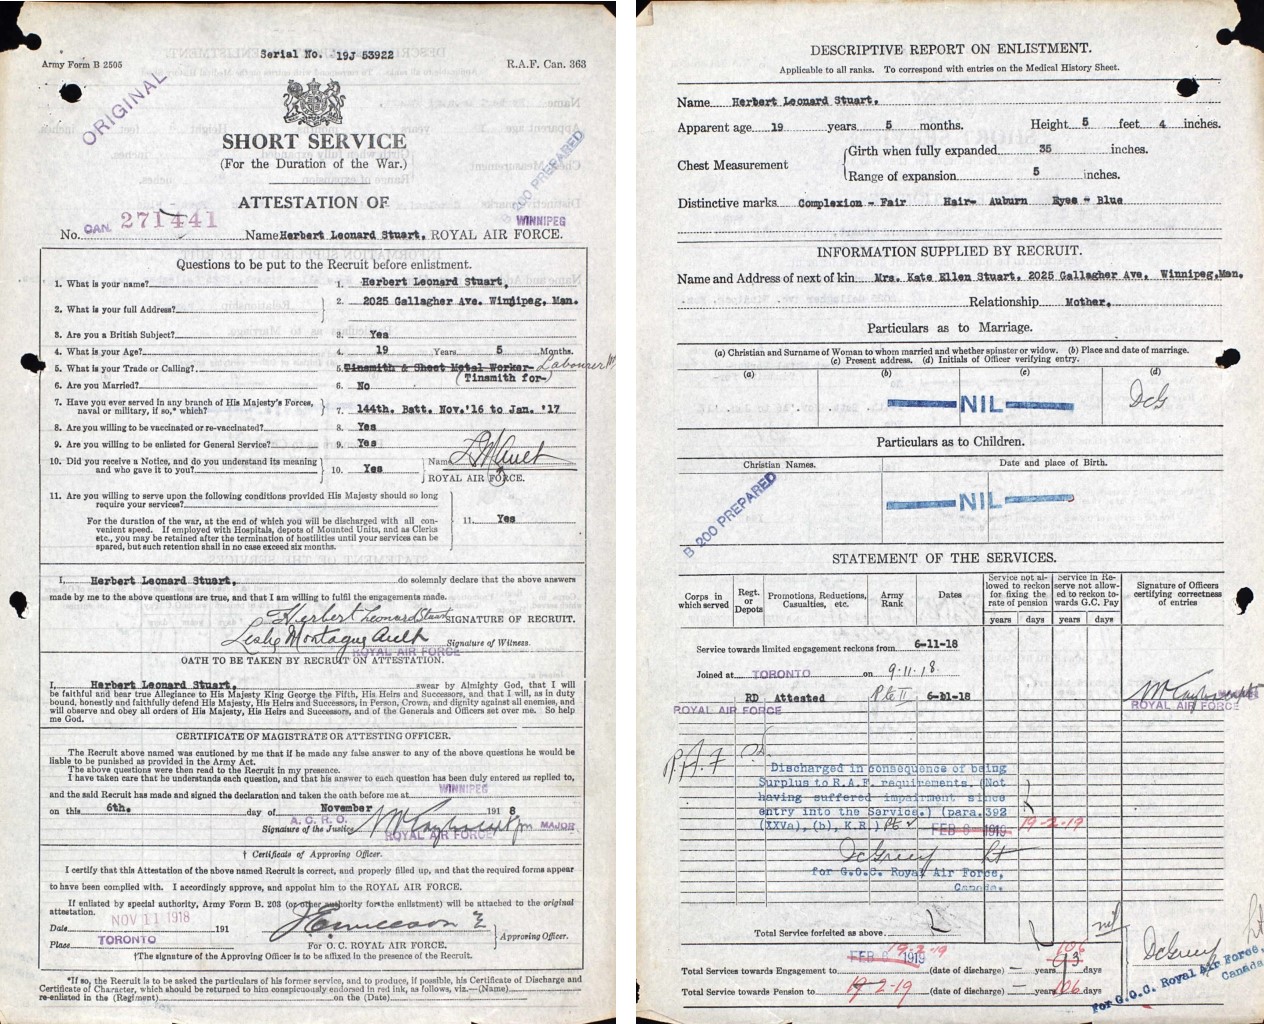 Serial No. 19J 53922
Army Form B 2505
R.A.F. Can. 363
ORIGINAL
SHORT SERVICE
(For the Duration of the War.)
B 200 PREPARED
ATTESTATION OF
No. CAN. 271441 Name Herbert Leonard Stuart, ROYAL AIR FORCE.
WINNIPEG
Questions to be put to the Recruit before enlistment.
1. What is your name? 1. Herbert Leonard Stuart,
2. What is your full Address? 2. 2025 Gallagher Ave. Winnipeg, Man.
3. Are you a British Subject? 3. Yes
4. What is your Age? 4. 19 Years 5 Months.
5. What is your Trade or Calling? 5. Tinsmith & Sheet Metal Worker- Labourer
(Tinsmith for-)
6. Are you Married? 6. No
7. Have you ever served in any branch of His Majesty's Forces,
naval or military, if so,* which? 7. 144th. Batt. Nov.'16 to Jan. '17
8. Are you willing to be vaccinated or re-vaccinated? 8. Yes
9. Are you willing to be enlisted for General Service? 9. Yes
10. Did you receive a Notice, and do you understand its meaning
and who gave it to you? 10. Yes Name L M Ault
ROYAL AIR FORCE.
11. Are you willing to serve upon the following conditions provided His Majesty should so long
require your services?
For the duration of the war, at the end of which you will be discharged with all con-
venient speed. If employed with Hospitals, depots of Mounted Units, and as Clerks
etc., you may be retained after the termination of hostilities until your services can be
spared, but such retention shall in no case exceed six months.
11. Yes
I, Herbert Leonard Stuart, do solemnly declare that the above answers
made by me to the above questions are true, and that I am willing to fulfil the engagements made.
Herbert Leonard Stuart SIGNATURE OF RECRUIT.
Leslie Montague Ault Signature of Witness.
ROYAL AIR FORCE
OATH TO BE TAKEN BY RECRUIT ON ATTESTATION.
I, Herbert Leonard Stuart, swear by Almighty God, that I will
be faithful and bear true Allegiance to His Majesty King George the Fifth, His Heirs and Successors, and that I will, as in duty
bound, honestly and faithfully defend His Majesty, His Heirs and Successors, in Person, Crown, and dignity against all enemies, and
will observe and obey all orders of His Majesty, His Heirs and Successors, and of the Generals and Officers set over me. So help
me God.
CERTIFICATE OF MAGISTRATE OR ATTESTING OFFICER.
The Recruit above named was cautioned by me that if he made any false answer to any of the above questions he would be
liable to be punished as provided in the Army Act.
The above questions were then read to the Recruit in my presence.
I have taken care that he understands each question, and that his answer to each question has been duly entered as replied to,
and the said Recruit has made and signed the declaration and taken the oath before me at WINNIPEG
on this 6th. day of November 1918
A. C. R. O.
Signature of the Justice
ROYAL AIR FORCE MAJOR
† Certificate of Approving Officer.
I certify that this Attestation of the above named Recruit is correct, and properly filled up, and that the required forms appear
to have been complied with. I accordingly approve, and appoint him to the ROYAL AIR FORCE.
If enlisted by special authority, Army Form B. 203 (or other authority for the enlistment) will be attached to the original
attestation.
Date NOV 11 1918 191
Place TORONTO
Approving Officer.
For O. C. ROYAL AIR FORCE.
†The signature of the Approving Officer is to be affixed in the presence of the Recruit.
*If so, the Recruit is to be asked the particulars of his former service, and to produce, if possible, his Certificate of Discharge and
Certificate of Character, which should be returned to him conspicuously endorsed in red ink, as follows, viz.—(Name)
re-enlisted in the (Regiment) on the (Date)
DESCRIPTIVE REPORT ON ENLISTMENT.
Applicable to all ranks. To correspond with entries on the Medical History Sheet.
Name Herbert Leonard Stuart.
Apparent age 19 years 5 months. Height 5 feet 4 inches.
Chest Measurement
Girth when fully expanded 35 inches.
Range of expansion 5 inches.
Distinctive marks Complexion - Fair Hair- Auburn Eyes - Blue
INFORMATION SUPPLIED BY RECRUIT.
Name and Address of next of kin Mrs. Kate Ellen Stuart, 2025 Gallagher Ave, Winnipeg, Man.
Relationship Mother.
Particulars as to Marriage.
(a) Christian and Surname of Woman to whom married and whether spinster or widow. (b) Place and date of marriage.
(c) Present address. (d) Initials of Officer verifying entry.
(a) (b) (c) (d)
NIL DcG
Particulars as to Children.
Christian Names. Date and place of Birth.
NIL
B 200 PREPARED
STATEMENT OF THE SERVICES.
Corps in which served
Regt. or Depots
Promotions, Reductions, Casualties, etc.
Army Rank
Dates
Service not allowed to reckon for fixing the rate of pension
Service in Reserve not allowed to reckon towards G.C. Pay
Signature of Officers certifying correctness of entries
years days years days
Service towards limited engagement reckons from 6-11-18
Joined at TORONTO on 9.11.18.
RD Attested Pte II 6-11-18
ROYAL AIR FORCE
ROYAL AIR FORCE
R.A.F
Discharged in consequence of being
Surplus to R.A.F. requirements. (Not
having suffered impairment since
entry into the Service.) (para.392
(XXVa), (b), K.R.) FEB 8 1919 19-2-19
DcGreey Lt
for G.O.C. Royal Air Force,
Canada.
Total Service forfeited as above. nil
FEB 8 1919 19-2-19
Total Services towards Engagement to (date of discharge) — years 106 days
Total Service towards Pension to 19-2-19 (date of discharge) — years 106 days
DcGreey Lt
for G.O.C. Royal Air Force,
Canada